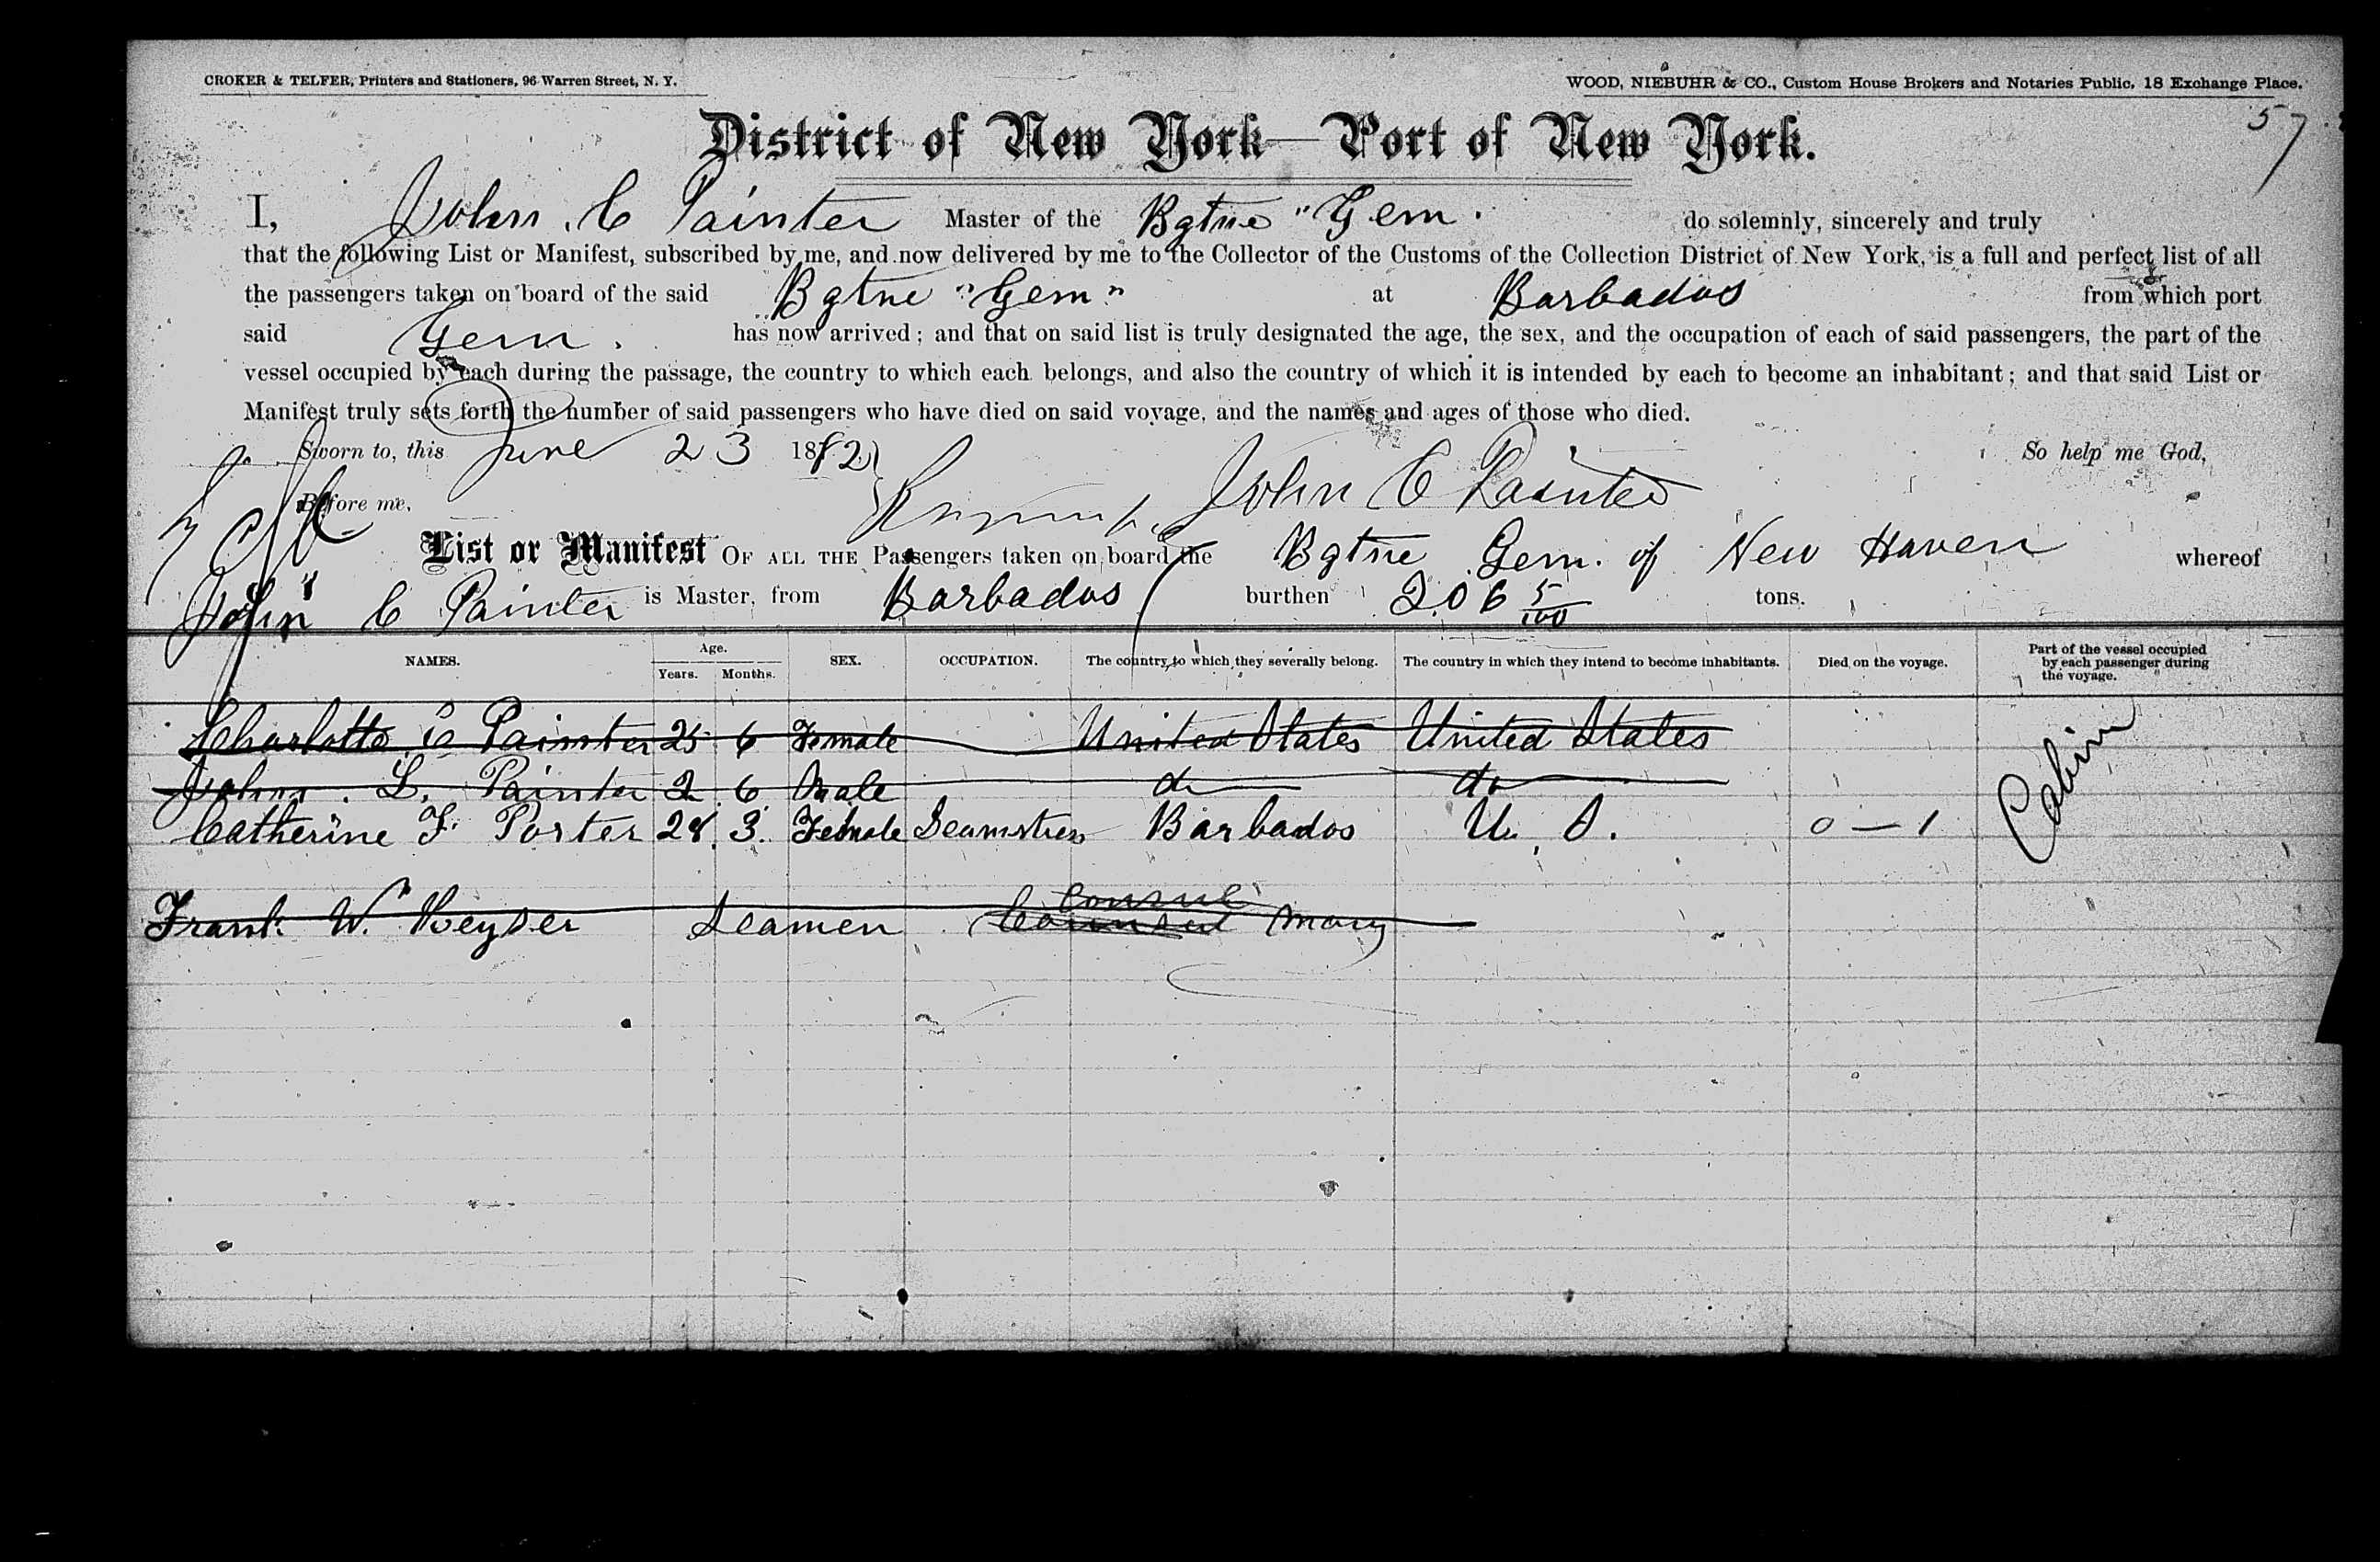 CROKER & TELFER, Printers and Stationers, 96 Warren Street, N. Y.
WOOD, NIEBUHR & CO., Custom House Brokers and Notaries Public, 18 Exchange Place.
57
District of New York—Port of New York.
I, John C Painter Master of the Bgtne "Gem. do solemnly, sincerely and truly
that the following List or Manifest, subscribed by me, and now delivered by me to the Collector of the Customs of the Collection District of New York, is a full and perfect list of all
the passengers taken on board of the said Bgtne "Gem" at Barbados from which port
said Gem. has now arrived; and that on said list is truly designated the age, the sex, and the occupation of each of said passengers, the part of the
vessel occupied by each during the passage, the country to which each belongs, and also the country of which it is intended by each to become an inhabitant; and that said List or
Manifest truly sets forth the number of said passengers who have died on said voyage, and the names and ages of those who died.
Sworn to, this June 23 1882 So help me God,
Before me. John C Painter
List or Manifest OF ALL THE Passengers taken on board the Bgtne Gem. of New Haven whereof
John C Painter is Master, from Barbados burthen 206 5/100 tons.
NAMES. Age. Years. Months. SEX. OCCUPATION. The country to which they severally belong. The country in which they intend to become inhabitants. Died on the voyage. Part of the vessel occupied by each passenger during the voyage.
Charlotte C Painter 25 6 Female United States United States
John L. Painter 2 6 Male do do
Catherine F. Porter 28 3 Female Seamstress Barbados U. S. 0 — 1
Cabin
Consul
Frank W. Keyser Seamen Mary